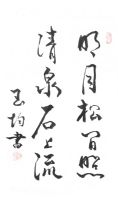 明月松间照
清泉石上流
玉均書